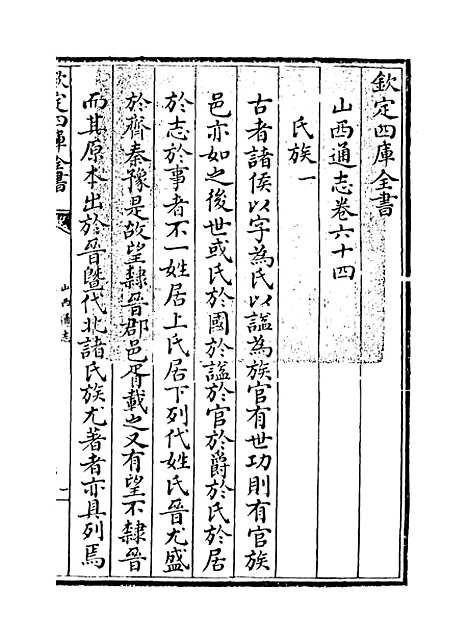 欽定四庫全書
山西通志卷六十四
氏族一
古者諸侯以字為氏以諡為族官有世功則有官族
邑亦如之後世或氏於國於諡於官於爵於氏於居
於志於事者不一姓居上氏居下列代姓氏晉尤盛
於齊秦豫是故望隸晉郡邑胥載之又有望不隸晉
而其原本出於晉暨代北諸氏族尤著者亦具列焉
欽定四庫全書
山西通志